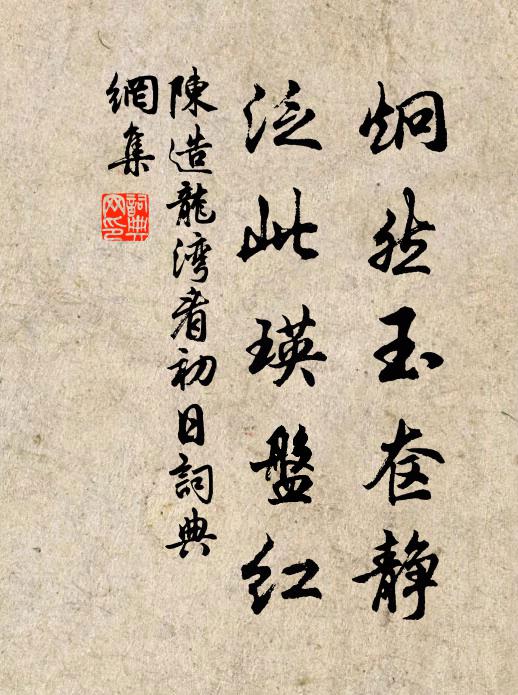 炯然玉奁静
泛此瑛盤红
陳造龍湾看初日詞典
網集
詞典
网印